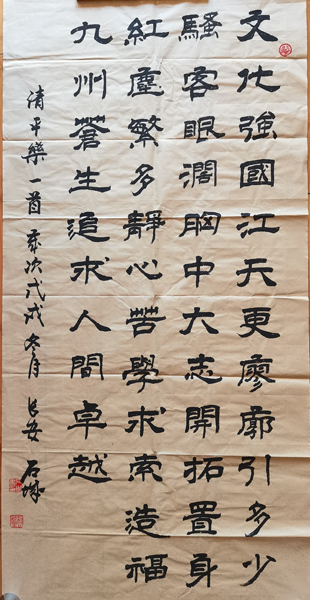 文化強國江天更廖廓引多少
騷客眼濶胸中大志開拓置身
紅塵繁多靜心苦學求索造福
九州蒼生追求人間卓越
清平樂一首 歲次戊戌冬月 長安 石城